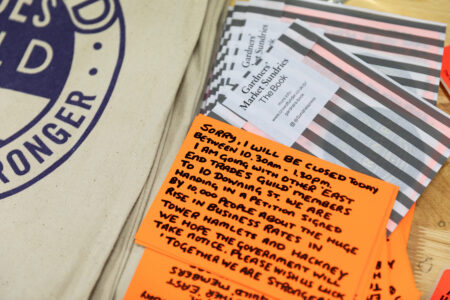 DES
LD
ONGER
Gardners'
Market Sundries
Gardners'
Market Sundries
The Book
SORRY, I WILL BE CLOSED TODAY
BETWEEN 10.30am – 1.30pm.
I AM GOING WITH OTHER EAST
END TRADES GUILD MEMBERS
TO 10 DOWNING ST. WE ARE
HANDING IN A PETITION SIGNED
BY 10,000 PEOPLE ABOUT THE HUGE
RISE IN BUSINESS RATES IN
TOWER HAMLETS AND HACKNEY
WE HOPE THE GOVERNMENT WILL
TAKE NOTICE. PLEASE WISH US
"TOGETHER WE ARE
EAST
MEMBERS